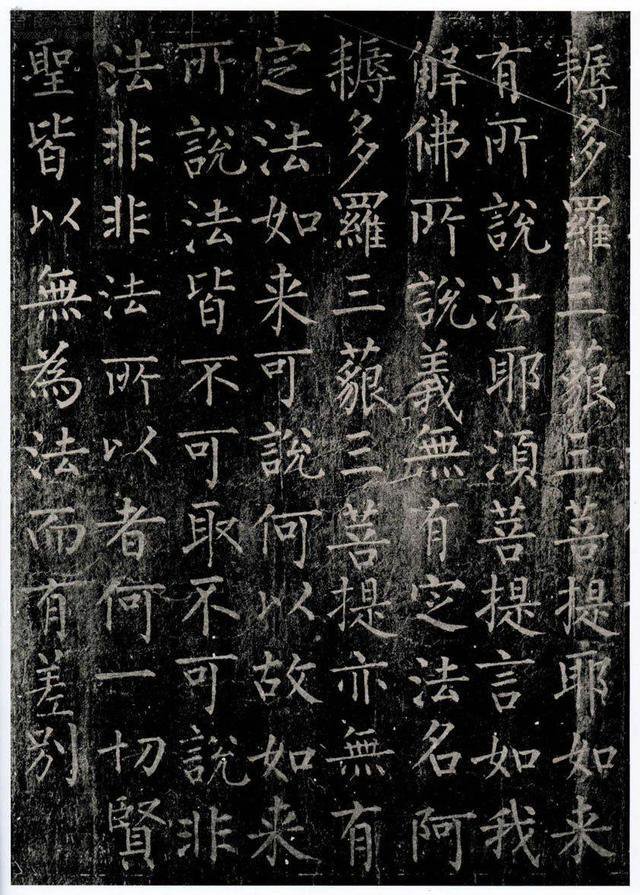 耨多羅三藐三菩提耶如来
有所說法耶須菩提言如我
解佛所說義無有定法名阿
耨多羅三藐三菩提亦無有
定法如来可說何以故如来
所說法皆不可取不可說非
法非非法所以者何一切賢
聖皆以無為法而有差别